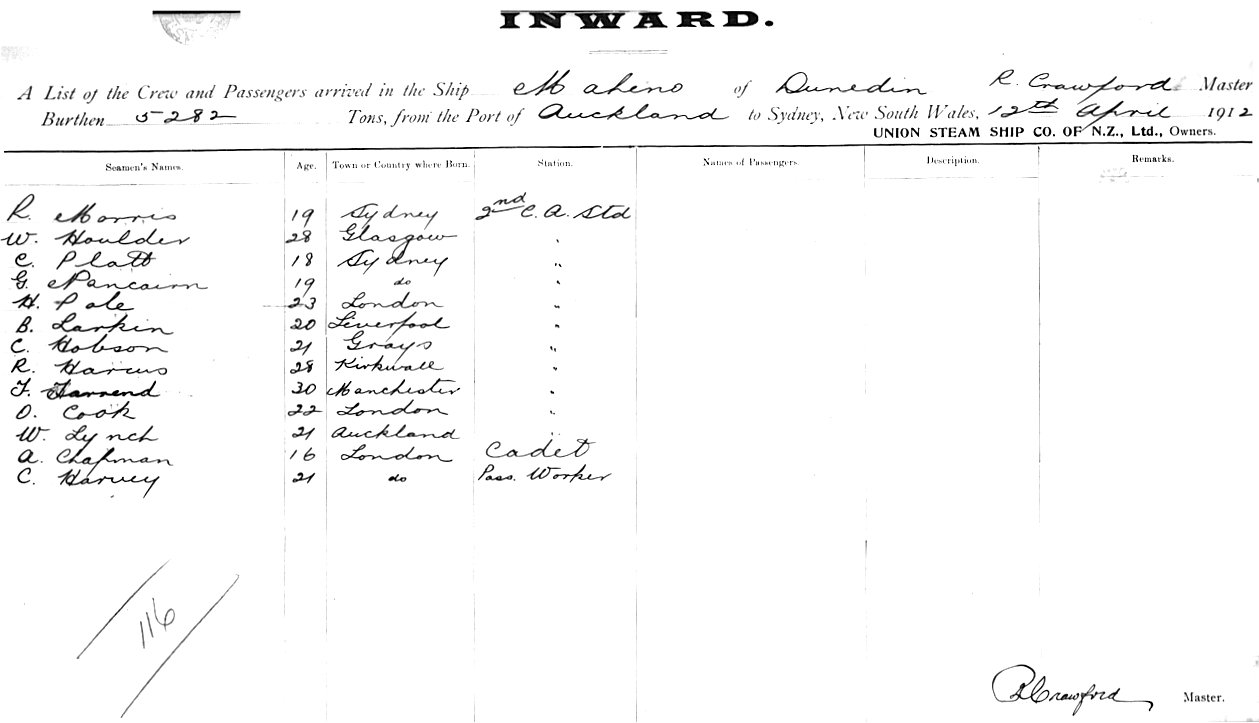 INWARD.
A List of the Crew and Passengers arrived in the Ship Maheno of Dunedin R. Crawford Master
Burthen 5282 Tons, from the Port of Auckland to Sydney, New South Wales, 12th April 1912
UNION STEAM SHIP CO. OF N.Z., Ltd., Owners.
Seamen's Names. Age. Town or Country where Born. Station. Names of Passengers. Description. Remarks.
R. Morris 19 Sydney 2nd C. A. Std
W. Houlder 28 Glasgow "
C. Platt 18 Sydney "
G. Mancairn 19 do "
H. Pole 23 London "
B. Larkin 20 Liverpool "
C. Hobson 21 Grays "
R. Harcus 28 Kirkwall "
F. 30 Manchester "
O. Cook 22 London "
W. Lynch 21 Auckland
A. Chapman 16 London Cadet
C. Harvey 21 do Pass. Worker
116
R Crawford Master.